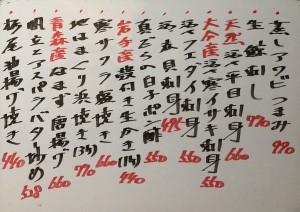 蒸しアワビつまみ 990
生鯨刺し 770
天然 活〆平目刺身 660
大分産 活〆寒イサキ刺身 550
活〆フエダイ刺身 550
活〆真鯵刺身 495
真だらの白子ポン酢 550
岩手産 殻付き生かき(1ヶ) 440
寒サワラ塩焼き 660
地はまぐり浜焼き(3ヶ) 770
青森産 なまず唐揚げ 660
帆立とアスパラバター炒め 528
栃尾油揚げ焼き 440